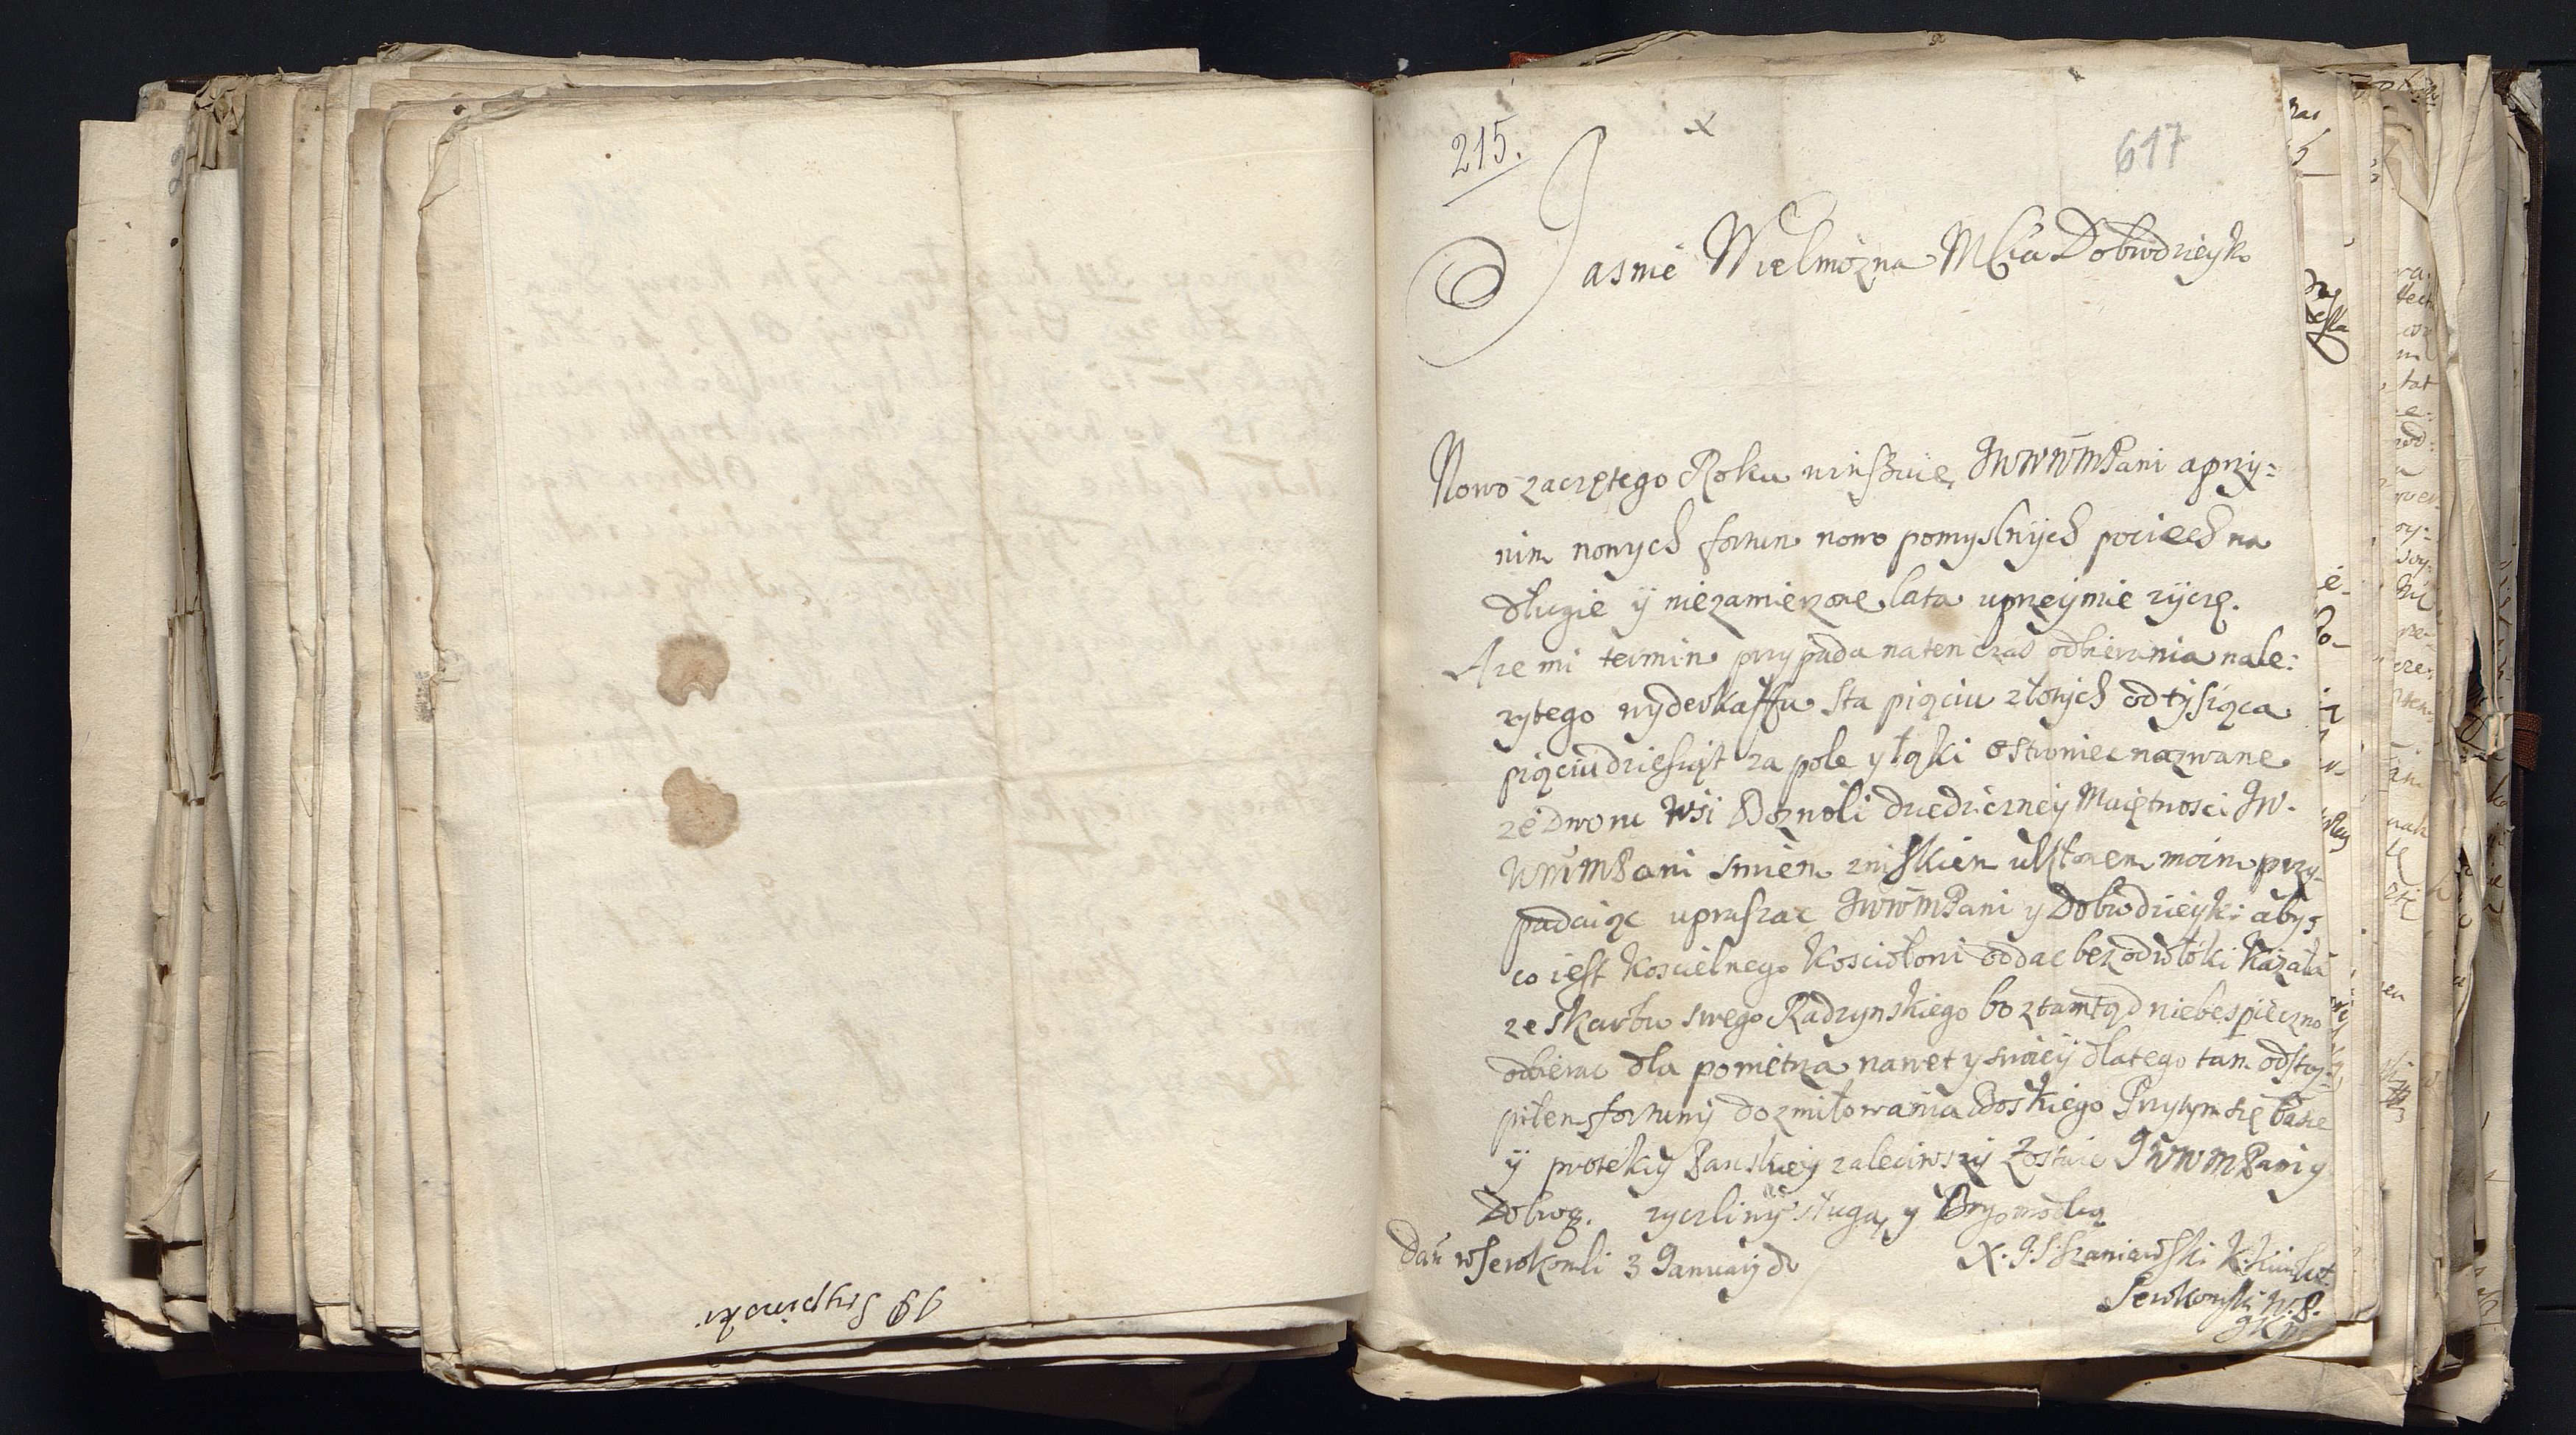 19 Stypinski
215.
x
617
Jasnie Wielmozna Mscia Dobrodzieyko
Nowo zaczętego Roku winszuię JWWMPani aprzy=
nim nowych fortun nowo pomyslnych pociech na
długie ÿ niezamierzone lata uprzeÿmie zÿczę.
Aze mi termin przypada naten czas odbierania nale=
zytego wyderkaffu sta pięciu złotych od tysiąca
pięciudziesiąt za pole y łąki Ostrowiec nazwane
zedworu wsi Woznoli dziedziczney Maiętnosci JW.
WMPani smiem zniskiem ukłonem moim przy-
padaiąc upraszac JWWMPani y Dobrodzieyki abys
co iest Koscielnego Kosciołowi oddac bezodwłoki Kazała
ze skarbu swego Radzynskiego bo ztamtąd niebespieczno
odbierac dla powietrza nawet y swoieÿ dlatego tam odstą=
piłem fortuny do zmiłowania Boskiego Przytym się łasce
ÿ protekcÿ Panskieÿ zaleciwszÿ Zostaię JWWMPani y
Dobrog. zyczliwÿ sługa, y Bogomodlcą
Dań w Serokomli 3 Januaÿ do
X. J. S. Szaniawski K.
Serokomski